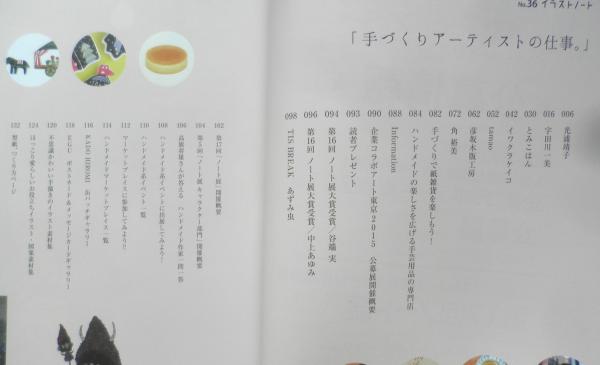 No.36 イラストノート
「手づくりアーティストの仕事。」
006 光浦靖子
016 宇田川一美
030 とみこはん
042 イワクラケイコ
052 tamao
062 彦坂木版工房
072 角 裕美
082 手づくりで紙雑貨を楽しもう!
084 ハンドメイドの楽しさを広げる手芸用品の専門店
088 Information
090 企業コラボアート東京2015 公募展開催概要
093 読者プレゼント
094 第16回 ノート展大賞受賞/谷端 実
096 第16回 ノート展大賞受賞/中上あゆみ
098 TIS BREAK あずみ虫
102 第17回「ノート展」開催概要
104 第5回「ノート展 キャラクター部門」開催概要
106 高橋育夏さんが答える ハンドメイド作家一問一答
108 ハンドメイド系イベントに出展してみよう!
110 ハンドメイド系イベント一覧
112 マーケットプレイスに参加してみよう!!
114 ハンドメイドマーケットプレイス一覧
116 KAIDE HIROMI 缶バッチギャラリー
118 EGG ポストカード&メッセージカードギャラリー
120 不思議かわいい手描きのイラスト素材集
124 ほっこり愛らしいお役立ちイラスト・図案素材集
132 型紙、つくり方ページ